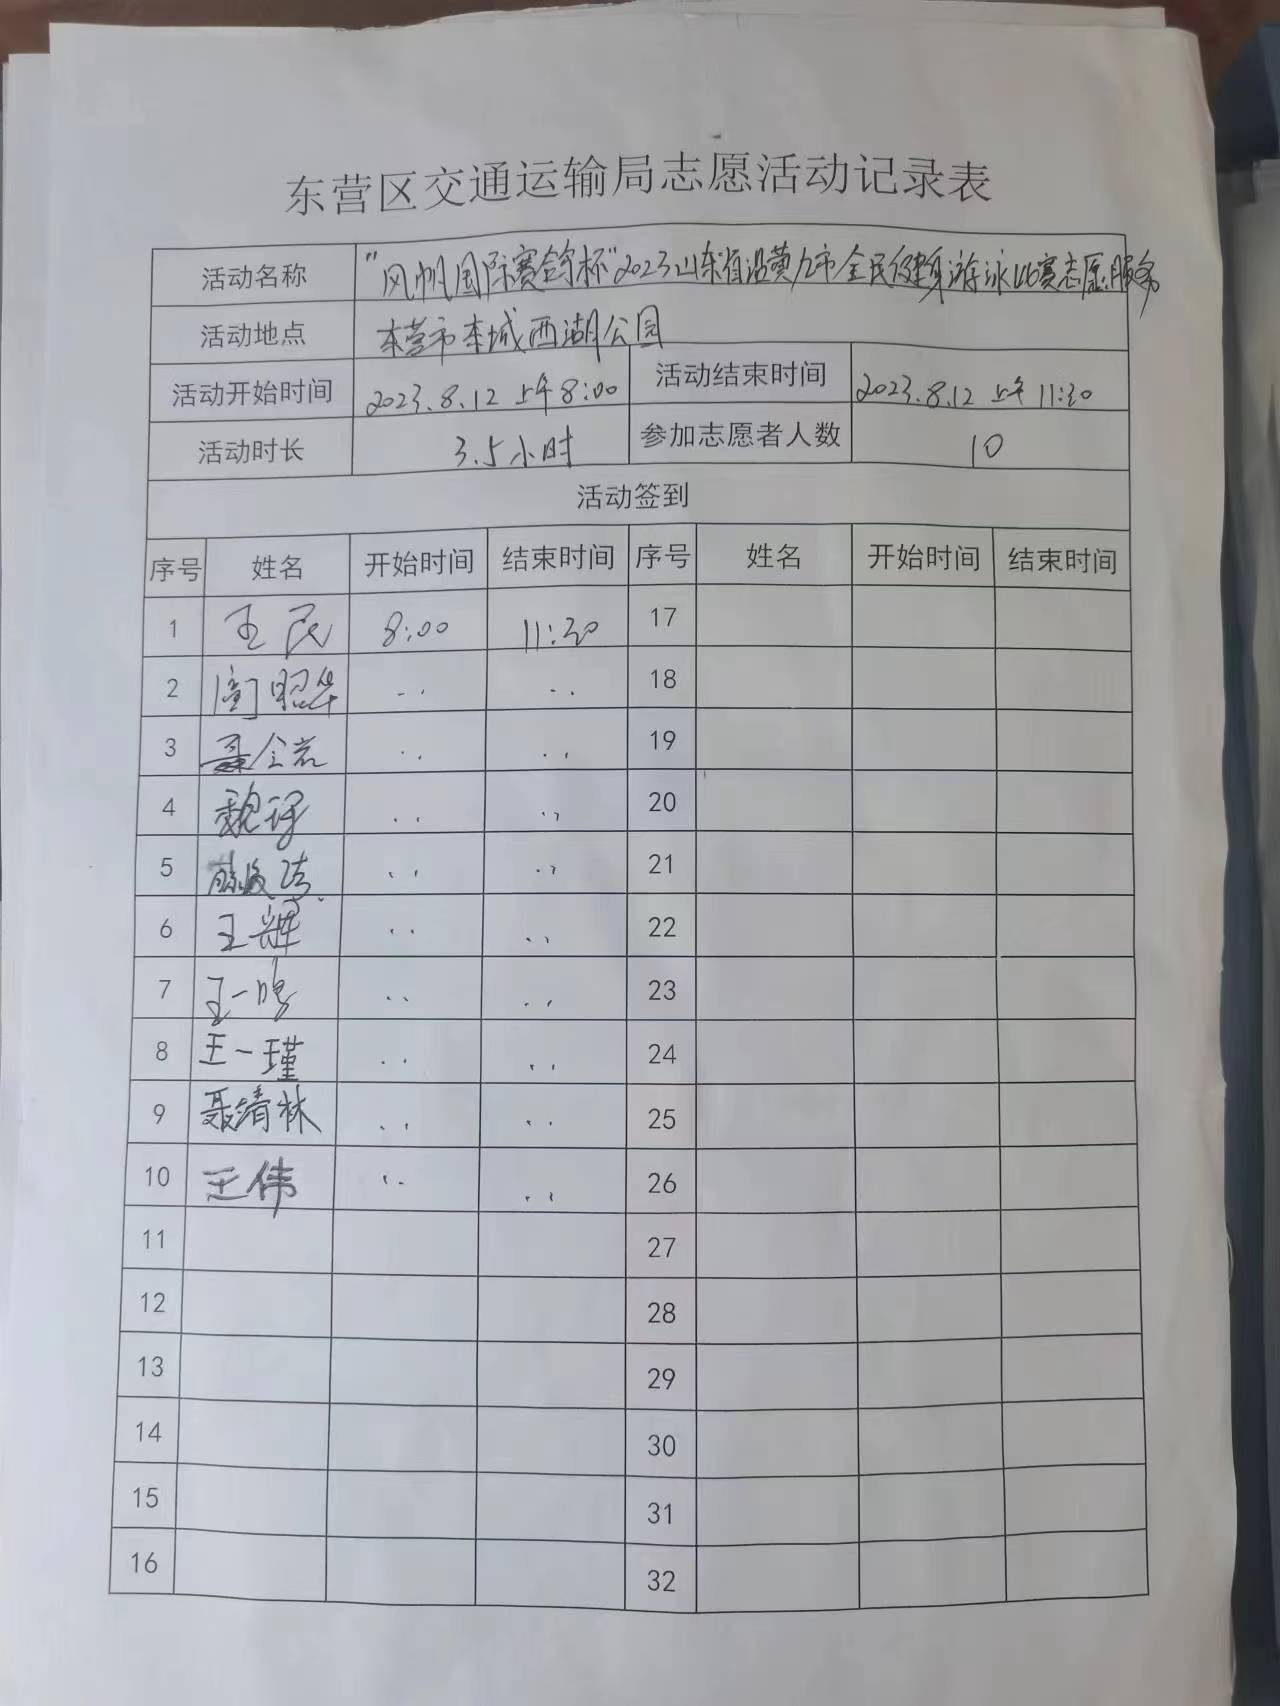 东营区交通运输局志愿活动记录表
活动名称 "风帆国际赛鸽杯"2023山东省沿黄九市全民健身游泳比赛志愿服务
活动地点 东营市东城西湖公园
活动开始时间 2023.8.12 上午8:00 活动结束时间 2023.8.12 上午11:30
活动时长 3.5小时 参加志愿者人数 10
活动签到
序号 姓名 开始时间 结束时间 序号 姓名 开始时间 结束时间
1 王民 8:00 11:30 17
2 昭华 .. .. 18
3 .. .. 19
4 魏 .. .. 20
5 .. .. 21
6 王辉 .. .. 22
7 王一鸣 .. .. 23
8 王一瑾 .. .. 24
9 聂清林 .. .. 25
10 王伟 .. .. 26
11 27
12 28
13 29
14 30
15 31
16 32